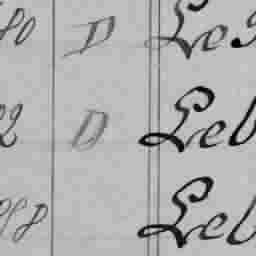 80 D Le
2 D Leb
98 Leb